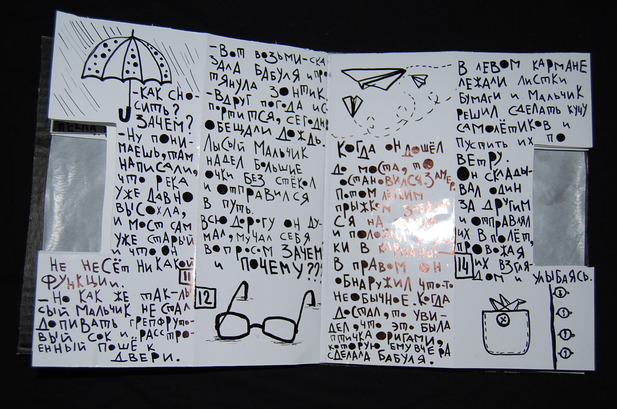 - КАК СНО-
СИТЬ?
ЗАЧЕМ?
- НУ ПОНИ
МАЕШЬ, ТАМ
НАПИСАЛИ,
ЧТО РЕКА
УЖЕ ДАВНО
ВЫСОХЛА,
И МОСТ САМ
УЖЕ СТАРЫЙ
И ЧТО ОН
НЕ НЕСЁТ НИКАКОЙ
ФУНКЦИИ.
- НО КАК ЖЕ ТАК - ЛЫ
СЫЙ МАЛЬЧИК НЕ СТАЛ
ДОПИВАТЬ ГРЕПФРУТО-
ВЫЙ СОК И РАССТРО-
ЕННЫЙ ПОШЁЛ К
ДВЕРИ.
11
- ВОТ ВОЗЬМИ - СКА
ЗАЛА БАБУЛЯ И ПРО
ТЯНУЛА ЗОНТИК
- ВДРУГ ПОГОДА ИС
ПОРТИТСЯ, СЕГОДНЯ
ОБЕЩАЛИ ДОЖДЬ.
ЛЫСЫЙ МАЛЬЧИК
НАДЕЛ БОЛЬШИЕ
ОЧКИ БЕЗ СТЁКОЛ
И ОТПРАВИЛСЯ
В ПУТЬ.
ВСЮ ДОРОГУ ОН ДУ-
МАЛ, МУЧАЛ СЕБЯ
ВОПРОСОМ ЗАЧЕМ
И ПОЧЕМУ???
12
КОГДА ОН ДОШЁЛ
ДО МОСТА, ТО
ОСТАНОВИЛСЯ, ЗАМЕР,
ПОТОМ ЛЕГКИМ
ПРЫЖКОМ
СЯ НА
И ПОЛО
КИ В КАРМАНЫ
В ПРАВОМ ОН
ОБНАРУЖИЛ ЧТО-ТО
НЕОБЫЧНОЕ. КОГДА
ДОСТАЛ, ТО УВИ-
ДЕЛ, ЧТО ЭТО БЫЛА
ПТИЧКА ОРИГАМИ,
КОТОРУЮ ЕМУ ВЧЕРА
СДЕЛАЛА БАБУЛЯ.
В ЛЕВОМ КАРМАНЕ
ЛЕЖАЛИ ЛИСТКИ
БУМАГИ И МАЛЬЧИК
РЕШИЛ СДЕЛАТЬ КУЧУ
САМОЛЁТИКОВ И
ПУСТИТЬ ИХ ПО
ВЕТРУ.
ОН СКЛАДЫ-
ВАЛ ОДИН
ЗА ДРУГИМ
И ОТПРАВЛЯЛ
ИХ В ПОЛЁТ,
ПРОВОЖАЯ
ИХ ВЗГЛЯ-
ДОМ И УЛЫБАЯСЬ.
14